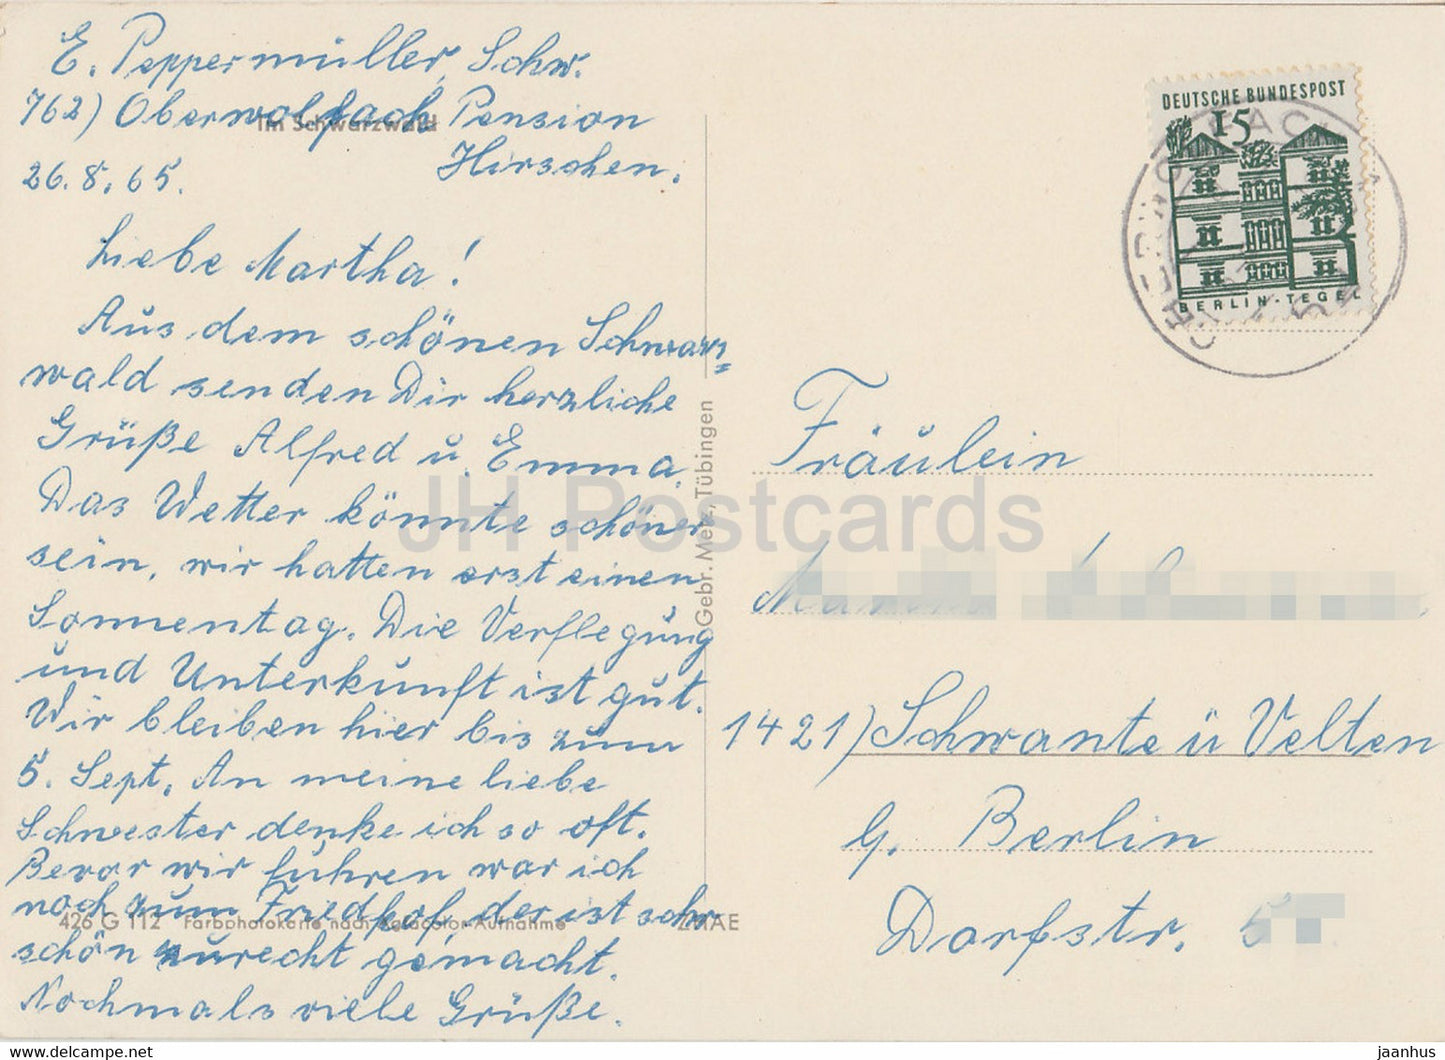 E. Peppermüller, Schw.
762) Oberwolfach Pension
Im Schwarzwald
Hirschen.
26.8.65.
Liebe Martha!
Aus dem schönen Schwarz=
wald senden Dir herzliche
Grüße Alfred u. Emma.
Das Wetter könnte schöner
sein, wir hatten erst einen
Sonnentag. Die Verflegung
und Unterkunft ist gut.
Wir bleiben hier bis zum
5. Sept. An meine liebe
Schwester denke ich so oft.
Bevor wir fuhren war ich
noch zum Friedhof, der ist sehr
schön zurecht gemacht.
Nochmals viele Grüße.
426 G 112 Farbphotokarte nach Agfacolor-Aufnahme
Gebr. Metz, Tübingen
DEUTSCHE BUNDESPOST
15
BERLIN-TEGEL
Fräulein
1421) Schwante ü Velten
b. Berlin
Dorfstr. 5
JH Postcards
jaanhus | www.delcampe.net